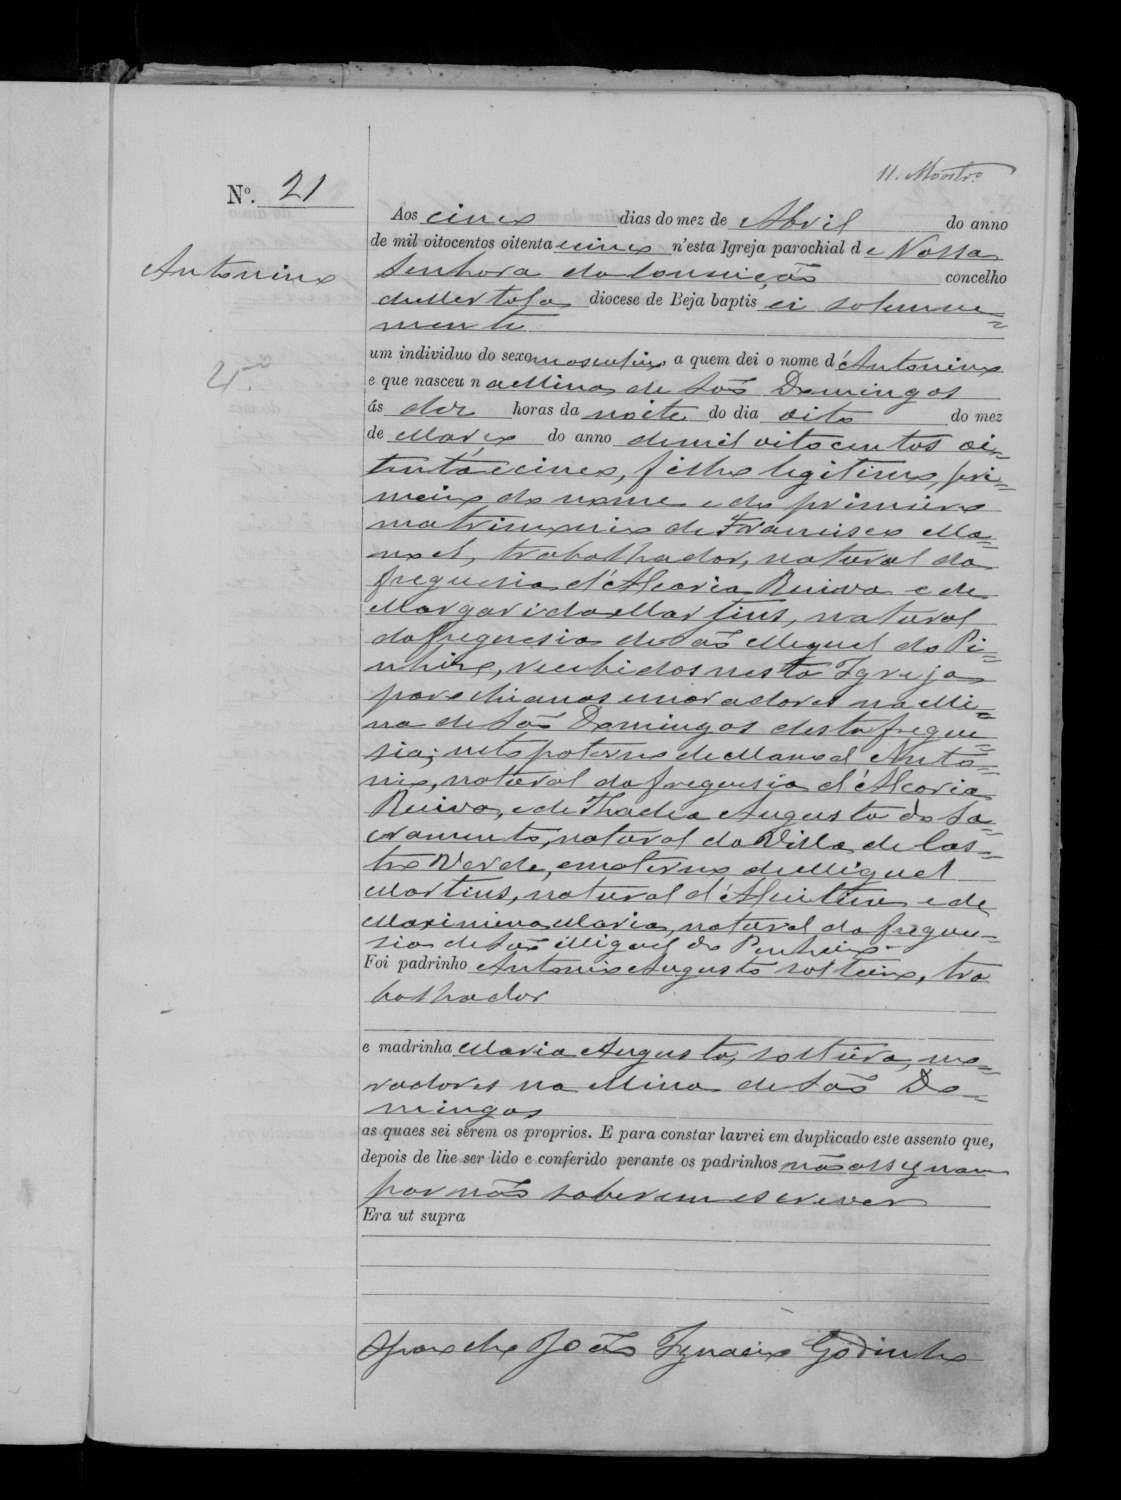 11. Montro
Nº. 21
Antonino
Aos cinco dias do mez de Abril do anno
de mil oitocentos oitenta e cinco n'esta Igreja parochial de Nossa
Senhora da Conceição concelho
de Mertola diocese de Beja baptisei solemne=
mente
um individuo do sexo masculino a quem dei o nome d'Antonino
e que nasceu na Mina de São Domingos
ás dez horas da noite do dia oito do mez
de Março do anno de mil oitocentos oi=
tenta e cinco, filho legitimo, pri=
meiro do nome e do primeiro
matrimonio de Francisco Ma=
noel, trabalhador, natural da
freguesia d'Alcaria Ruiva e de
Margarida Martins, natural
da freguesia de São Miguel do Pi=
nheiro, recebidos nesta Igreja
parochianos e moradores na Mi=
na de São Domingos desta fregue=
sia; neto paterno de Manoel Anto=
nio, natural da freguesia d'Alcaria
Ruiva, e de Thadea Augusta do Sa=
cramento, natural da Villa de Cas=
tro Verde, e materno de Miguel
Martins, natural d' e de
Maximina Maria, natural da fregue=
sia de São Miguel do Pinheiro
Foi padrinho Antonio Augusto solteiro, tra
balhador
e madrinha Maria Augusta, solteira, mo=
radores na Mina de São Do=
mingos
as quaes sei serem os proprios. E para constar lavrei em duplicado este assento que,
depois de lhe ser lido e conferido perante os padrinhos não assignam
por não saberem escrever
Era ut supra
O Parocho João Ignacio Godinho